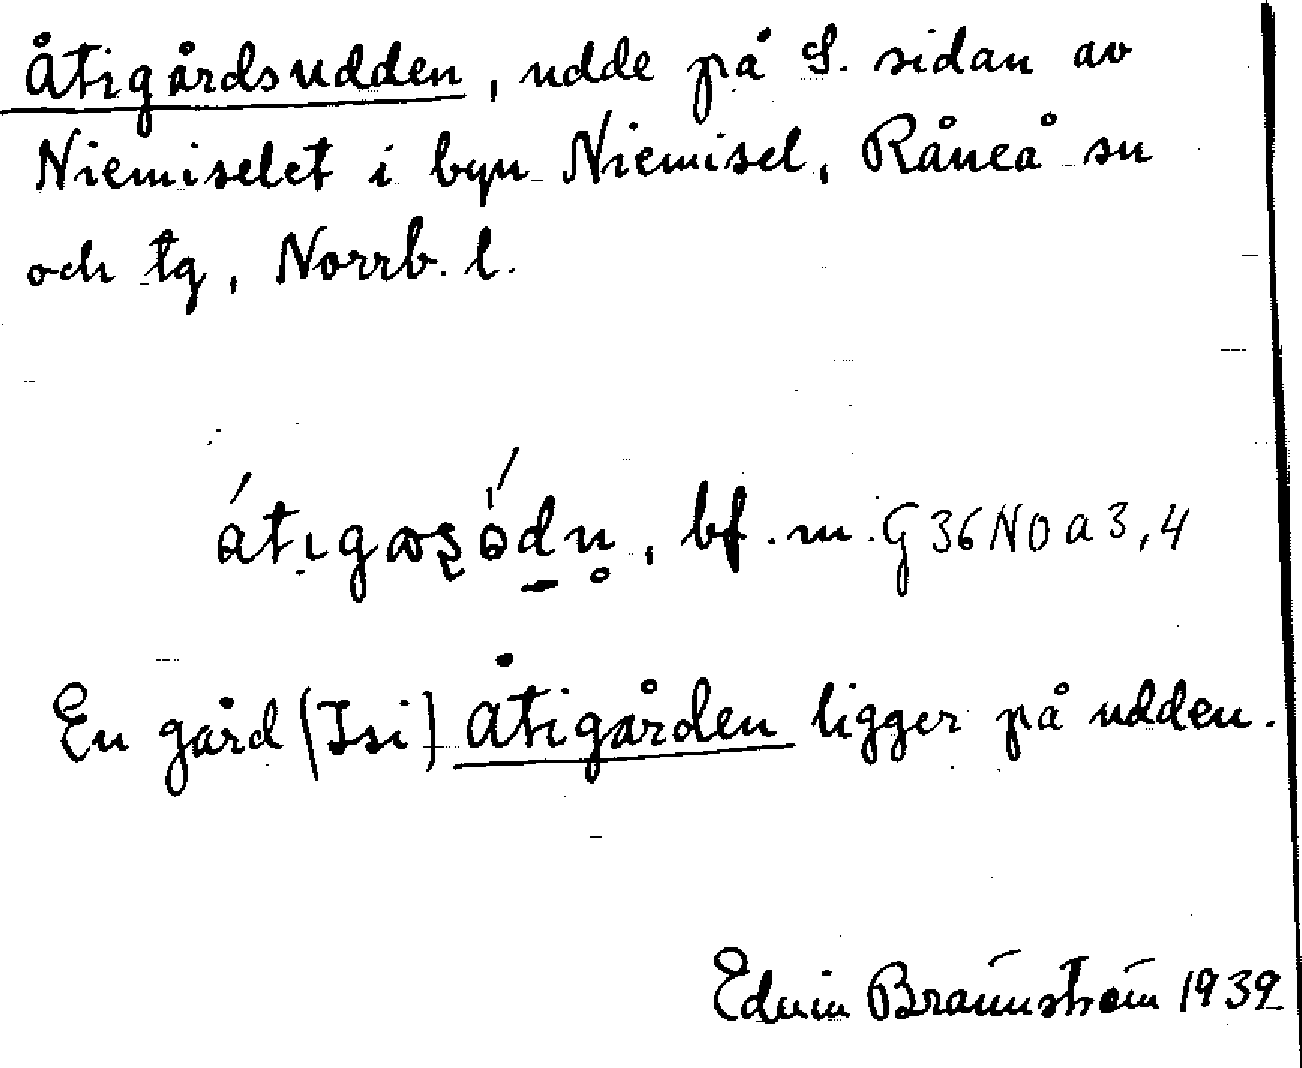 Åtigårdsudden, udde på S. sidan av
Niemiselet i byn Niemisel, Råneå sn
och tg, Norrb. l.
bf. m. G 36 NO a 3, 4
En gård (Isi) Åtigården ligger på udden.
Edvin Brännström 1939